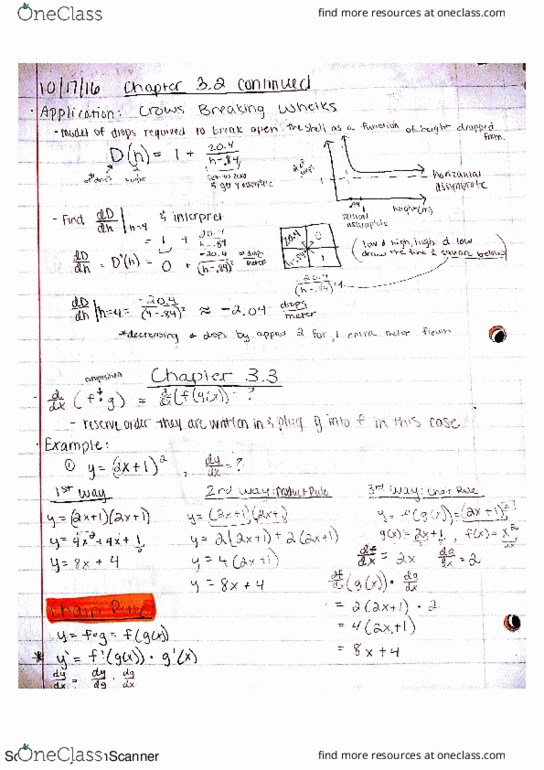 OneClass
find more resources at oneclass.com
10/17/16 Chapter 3.2 continued
· Application: Crows Breaking Whelks
- model of drops required to break open the shell as a function of height dropped from
D(h) = 1 + 20.4/(h-.84)
horizontal asymptote
height(m)
vertical asymptote
- Find dD/dh |h=4 & interpret
= 1 + 20.4/(h-.84)
dD/dh = D'(h) = 0 + -20.4/(h-.84)² drops/meter
(low d high, high d low
draw the line & square below)
dD/dh |h=4 = -20.4/(4-.84)² ≈ -2.04 drops/meter
*decreasing # drops by approx 2 for 1 extra meter flown
composition
Chapter 3.3
d/dx (f∘g) = d/dx (f(g(x)) ?
- reserve order they are written in & plug g into f in this case
· Example:
① y = (2x+1)², dy/dx = ?
1st way
y = (2x+1)(2x+1)
y = 4x² + 4x + 1
y = 8x + 4
2nd way: Product Rule
y = (2x+1)(2x+1)
y = 2(2x+1) + 2(2x+1)
y = 4(2x+1)
y = 8x + 4
3rd way: Chain Rule
y = f(g(x)) = (2x+1)²
g(x) = 2x+1, f(x) = x²
df/dx = 2x dg/dx = 2
df/dx (g(x)) · dg/dx
= 2(2x+1) · 2
= 4(2x+1)
= 8x + 4
Chain Rule
y = f∘g = f(g(x))
* y' = f'(g(x)) · g'(x)
dy/dx = dy/dg · dg/dx
OneClass
Scanner
find more resources at oneclass.com